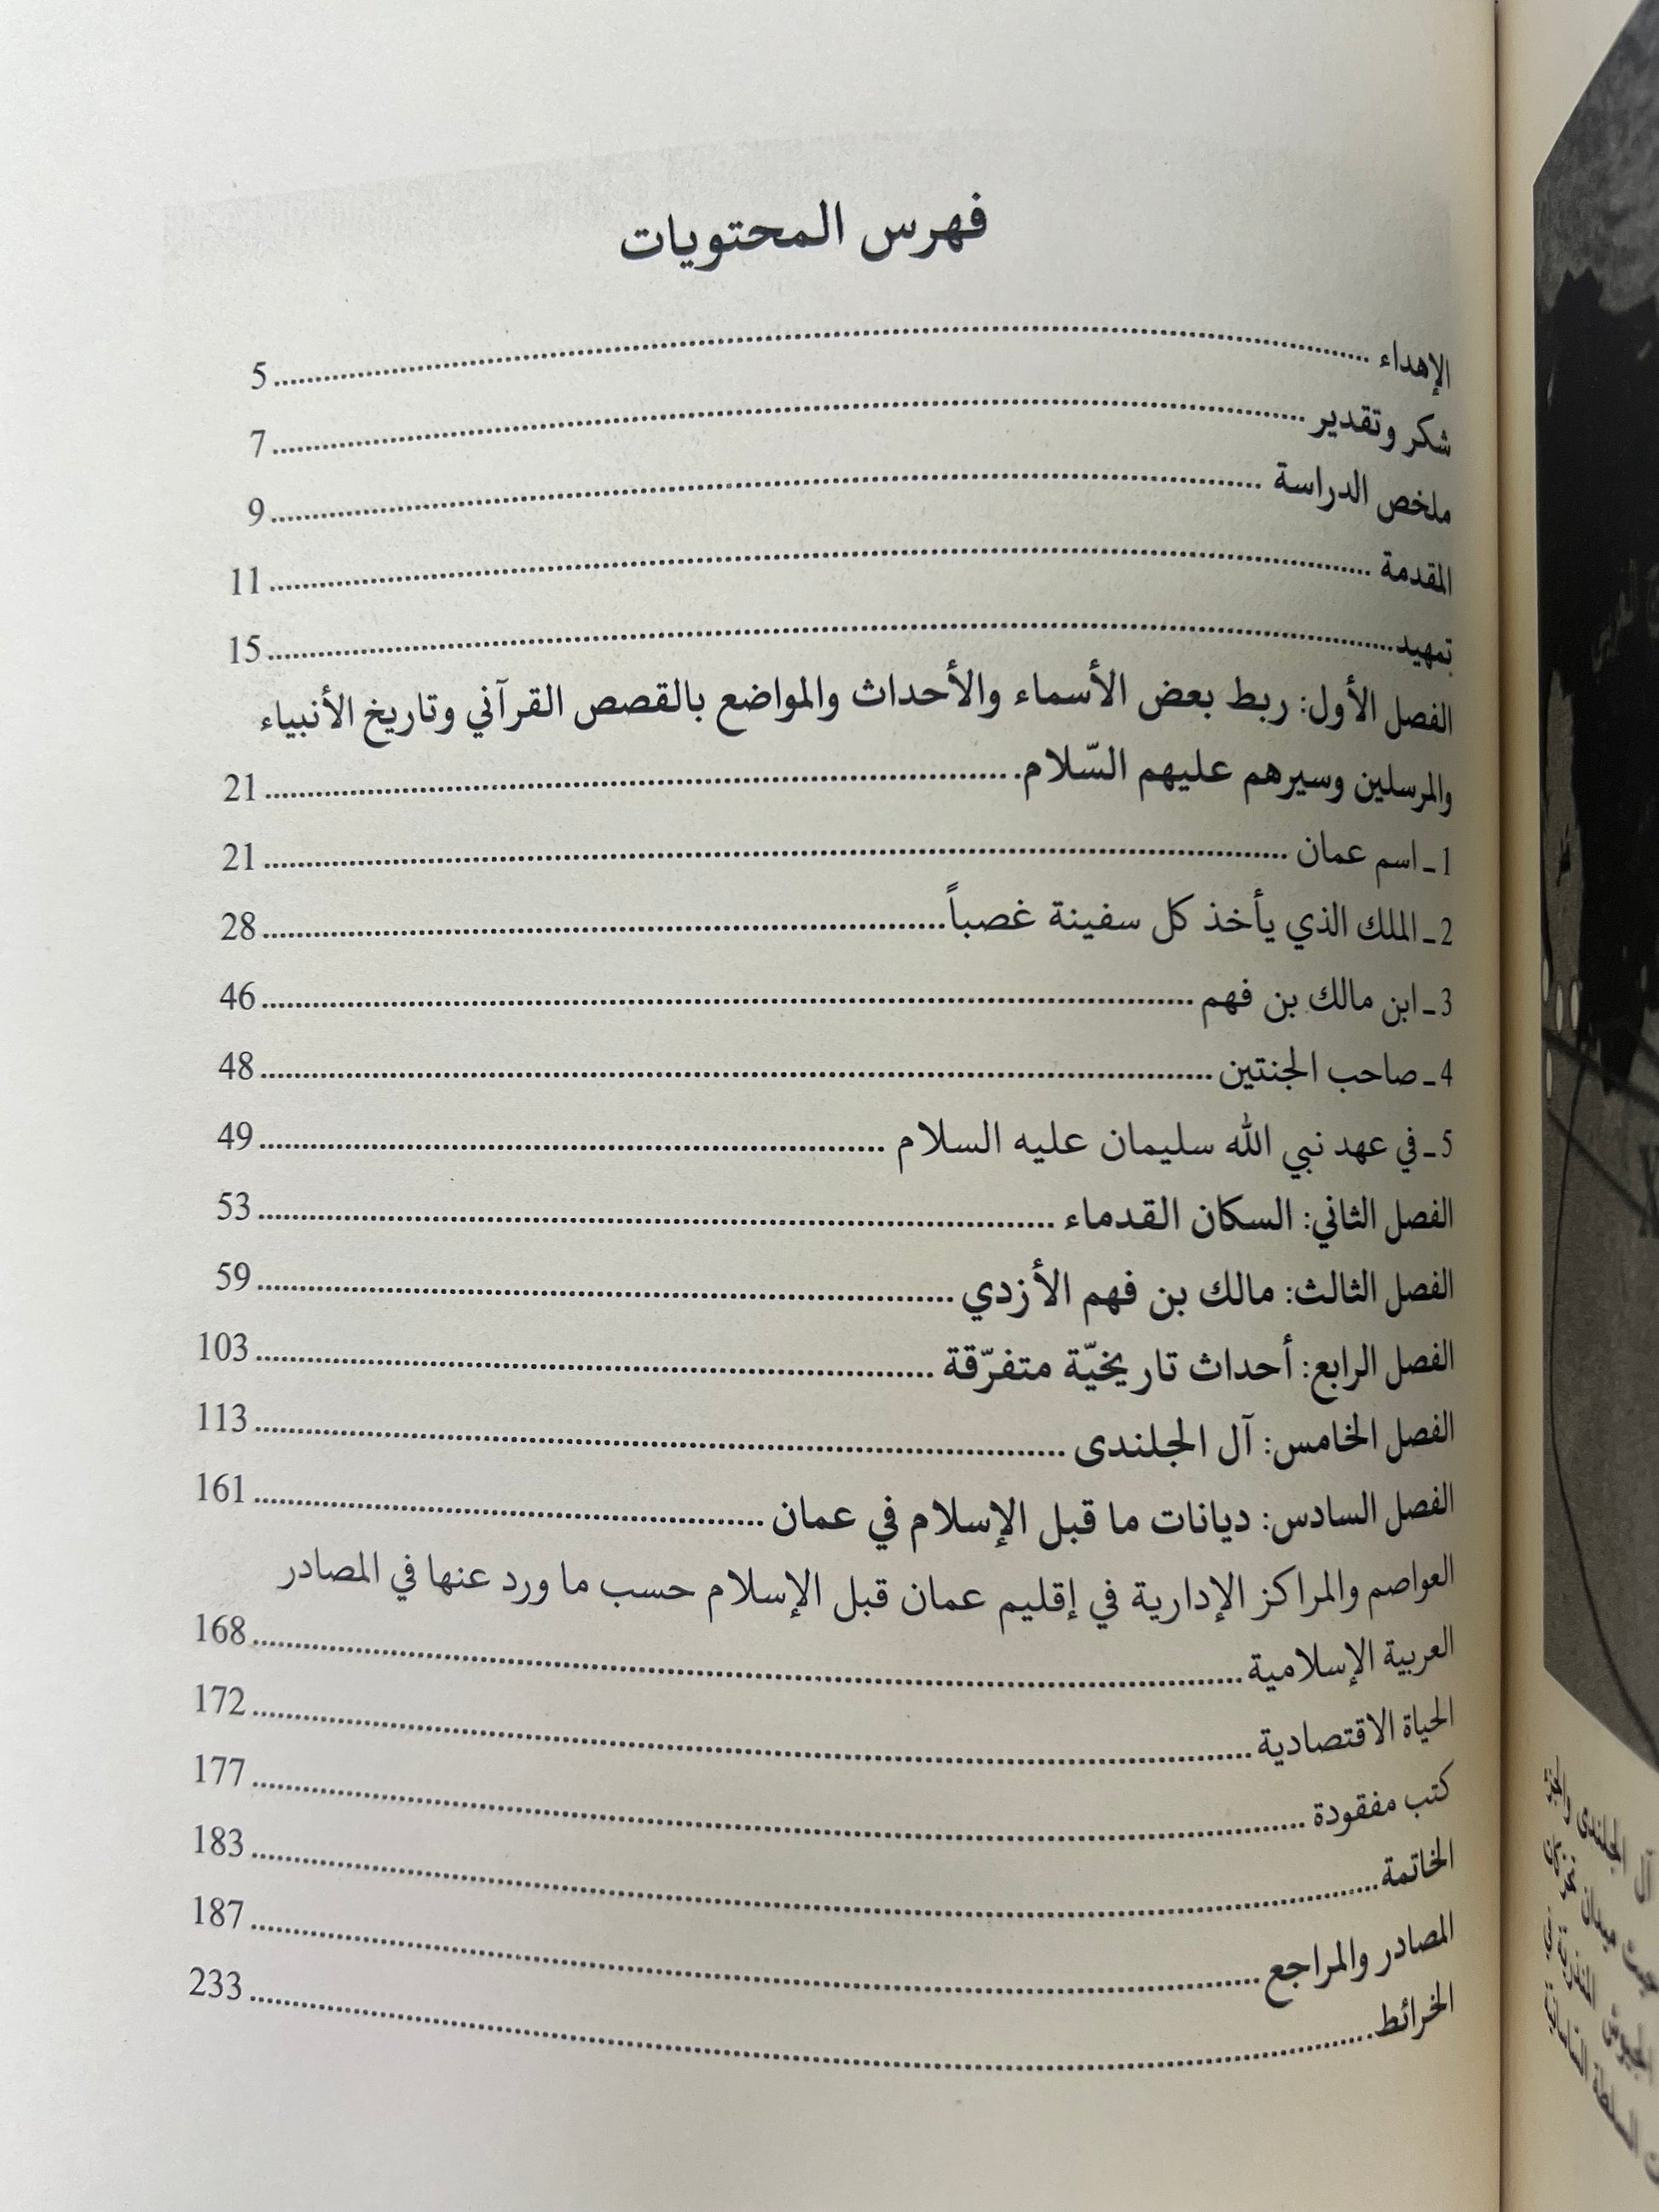 فهرس المحتويات
الإهداء ........ 5
شكر وتقدير ........ 7
ملخص الدراسة ........ 9
المقدمة ........ 11
تمهيد ........ 15
الفصل الأول: ربط بعض الأسماء والأحداث والمواضع بالقصص القرآني وتاريخ الأنبياء
والمرسلين وسيرهم عليهم السّلام ........ 21
1 ـ اسم عمان ........ 21
2 ـ الملك الذي يأخذ كل سفينة غصباً ........ 28
3 ـ ابن مالك بن فهم ........ 46
4 ـ صاحب الجنتين ........ 48
5 ـ في عهد نبي الله سليمان عليه السلام ........ 49
الفصل الثاني: السكان القدماء ........ 53
الفصل الثالث: مالك بن فهم الأزدي ........ 59
الفصل الرابع: أحداث تاريخيّة متفرّقة ........ 103
الفصل الخامس: آل الجلندى ........ 113
الفصل السادس: ديانات ما قبل الإسلام في عمان ........ 161
العواصم والمراكز الإدارية في إقليم عمان قبل الإسلام حسب ما ورد عنها في المصادر
العربية الإسلامية ........ 168
الحياة الاقتصادية ........ 172
كتب مفقودة ........ 177
الخاتمة ........ 183
المصادر والمراجع ........ 187
الخرائط ........ 233
آل الجلندى